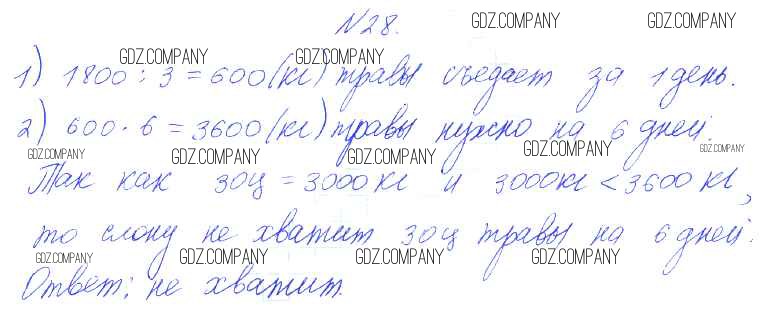 №28.
GDZ.COMPANY GDZ.COMPANY
GDZ.COMPANY GDZ.COMPANY GDZ.COMPANY
1) 1800 : 3 = 600 (кг) травы съедает за 1 день.
2) 600 · 6 = 3600 (кг) травы нужно на 6 дней.
GDZ.COMPANY GDZ.COMPANY GDZ.COMPANY GDZ.COMPANY GDZ.COMPANY
Так как 30ц = 3000 кг и 3000кг < 3600 кг,
то слону не хватит 30ц травы на 6 дней.
GDZ.COMPANY GDZ.COMPANY GDZ.COMPANY GDZ.COMPANY
Ответ: не хватит.